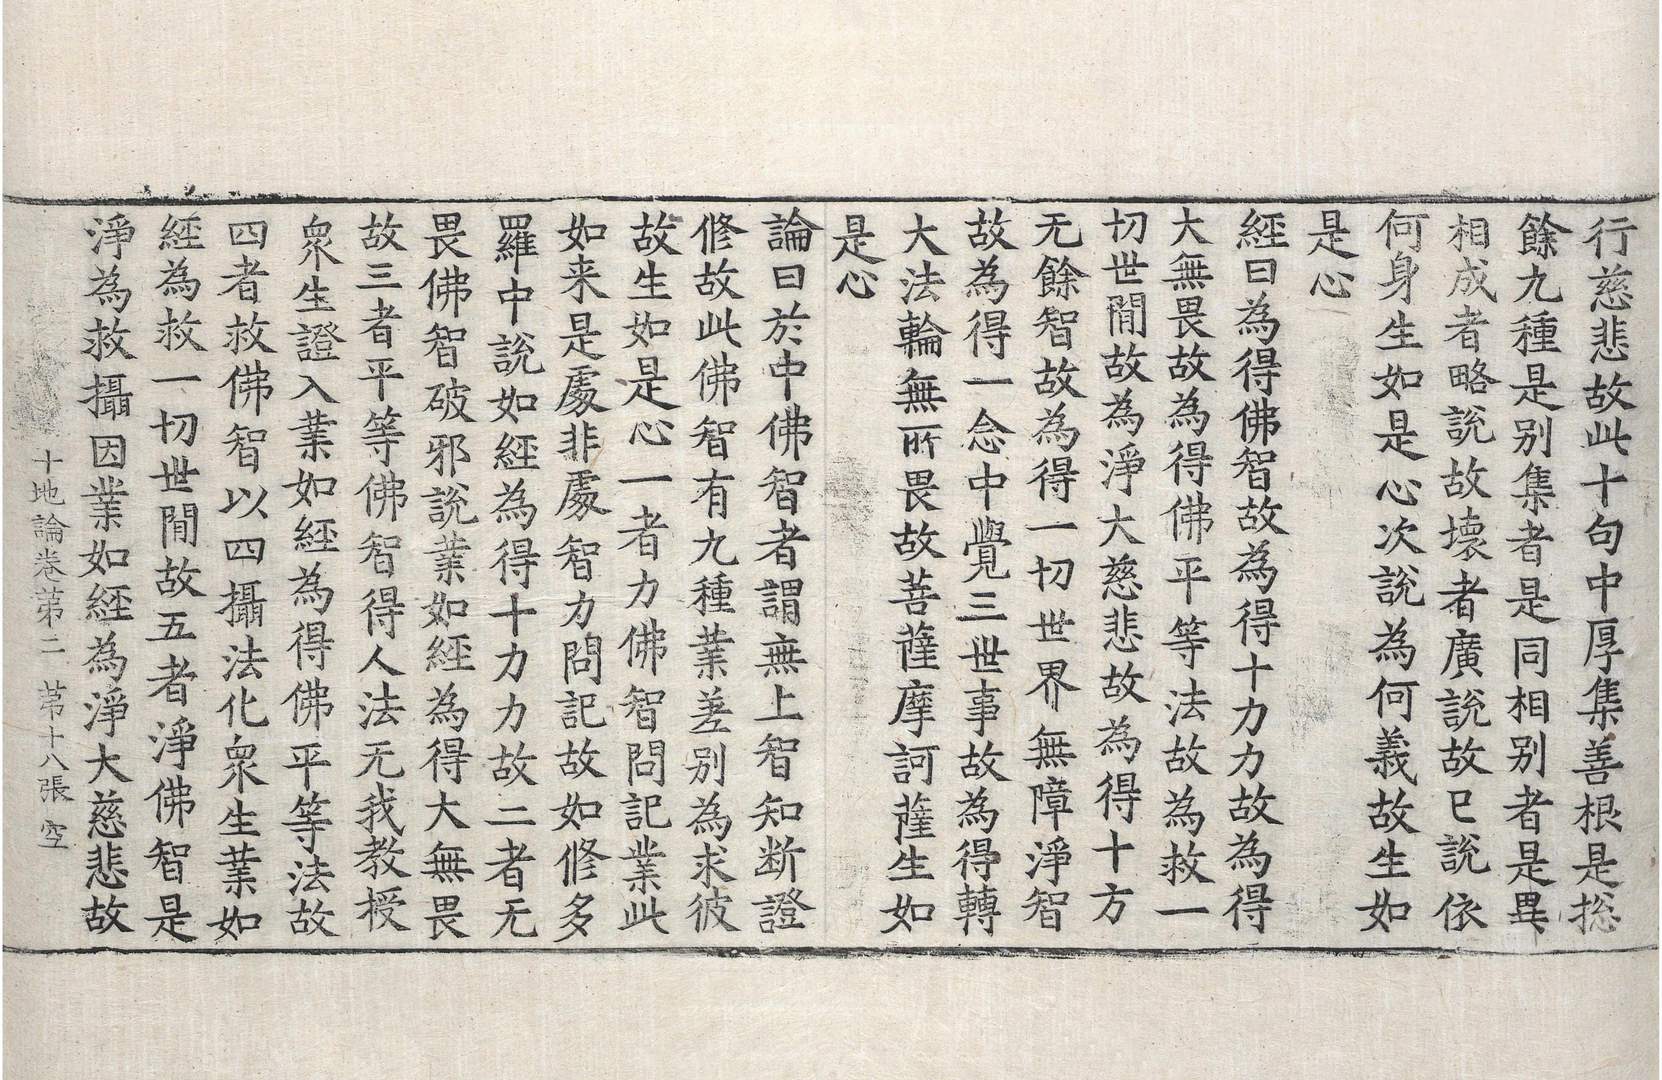 行慈悲故此十句中厚集善根是捴
餘九種是别集者是同相别者是異
相成者略説故壊者廣説故已説依
何身生如是心次說為何義故生如
是心
經曰為得佛智故為得十力力故為得
大無畏故為得佛平等法故為救一
切世間故為淨大慈悲故為得十方
无餘智故為得一切世界無障淨智
故為得一念中覺三世事故為得轉
大法輪無所畏故菩薩摩訶薩生如
是心
論曰於中佛智者謂無上智知断證
修故此佛智有九種業差别為求彼
故生如是心一者力佛智問記業此
如来是處非處智力問記故如修多
羅中說如經為得十力力故二者无
畏佛智破邪說業如經為得大無畏
故三者平等佛智得人法无我教授
衆生證入業如經為得佛平等法故
四者救佛智以四攝法化衆生業如
經為救一切世間故五者淨佛智是
淨為救攝因業如經為淨大慈悲故
十地論卷苐二 苐十八張 空